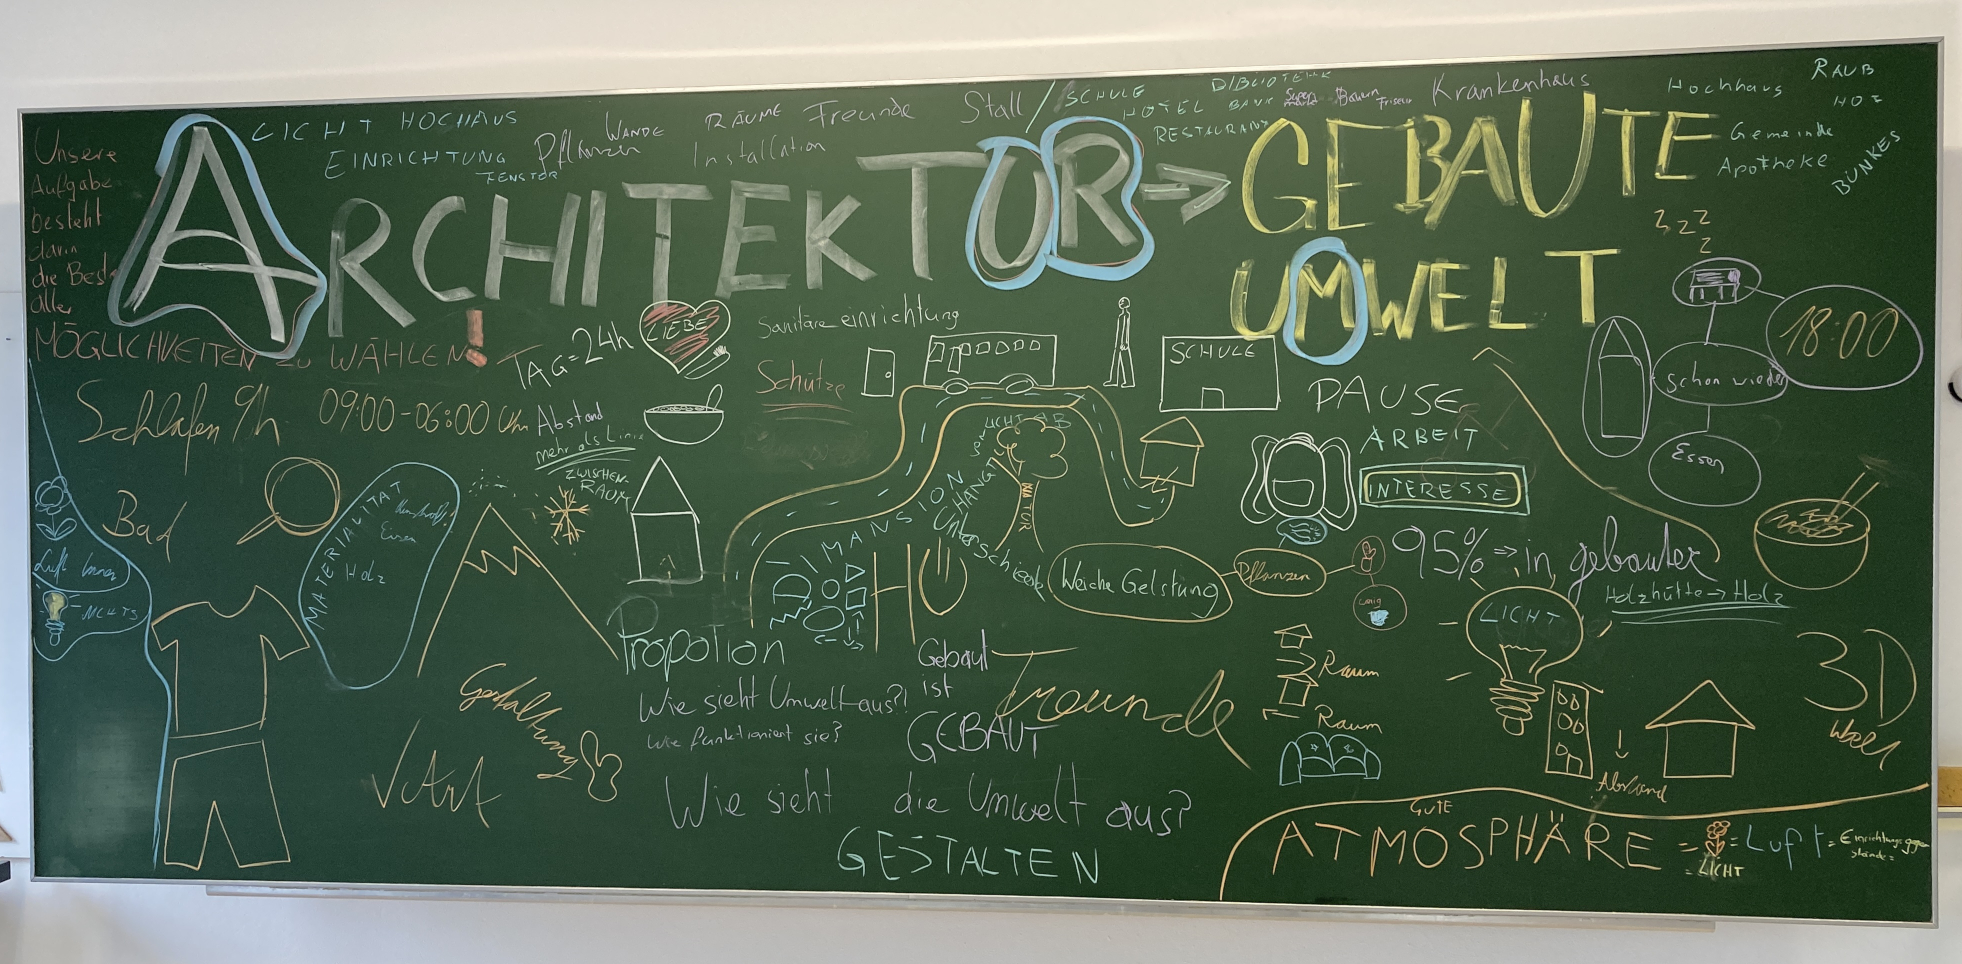 Unsere
Aufgabe
besteht
darin
die Beste
aller
MÖGLICHKEITEN ZU WÄHLEN!
LICHT HOCHAUS
EINRICHTUNG
FENSTOR
Pflanzen
WÄNDE
RÄUME
Installation
Freunde
Stall
SCHULE
HOTEL
RESTAURANT
BANK
Bauern
Friseur
Krankenhaus
Hochhaus
RAUB
Gemeinde
Apotheke
BÜNKES
ARCHITEKTOR → GEBAUTE
UMWELT
zzz
z
18:00
schon wieder
Essen
TAG = 24h
LIEBE
Sanitäre einrichtung
Schütze
SCHULE
PAUSE
ARBEIT
INTERESSE
Schlafen 9h 09:00-06:00 Uhr
Abstand
mehr als Linie
ZWISCHEN-
RAUM
Bad
Luft
NICHTS
MATERIALITÄT
Eisen
Holz
Propotion
Weiche Gelstung
Pflanzen
95% ⇒ in gebauter
Holzhütte → Holz
LICHT
3D
Gestalltung
√Art
Wie sieht Umwelt aus?!
Wie funktioniert sie?
Gebaut
ist
GEBAUT
Freunde
Raum
Raum
Abstand
Wie sieht die Umwelt aus?
GESTALTEN
GUTE
ATMOSPHÄRE = = Luft = Einrichtungsgegen
stände =
= LICHT